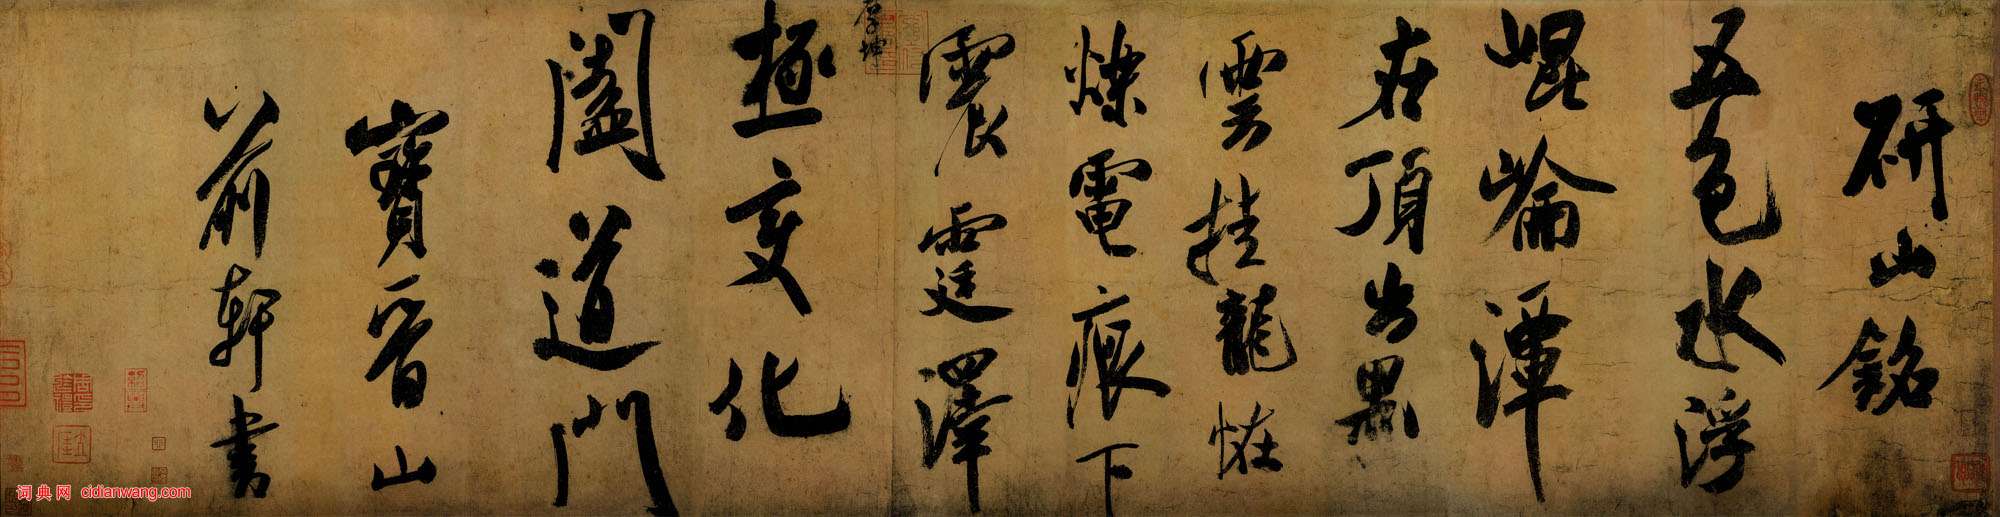 研山銘
五色水浮
崐崘潭
在頂出黑
雲挂龍怪
爍電痕下
震霆澤
厚坤
極變化
闔道門
寶晉山
前軒書
词典网 cidianwang.com